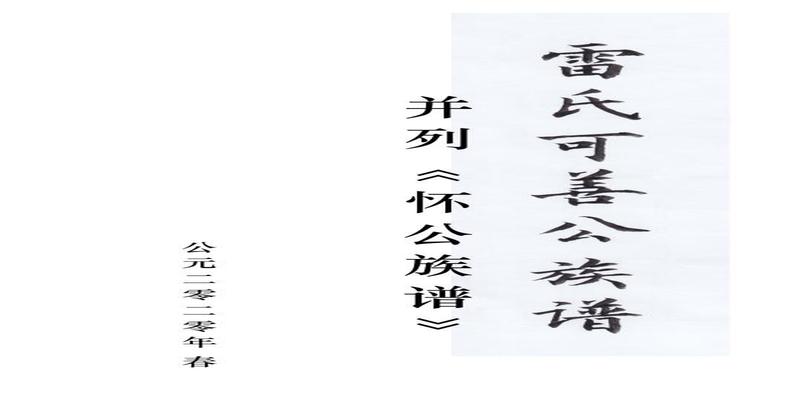 雷氏可善公族谱
并列《怀公族谱》
公元二零二零年春